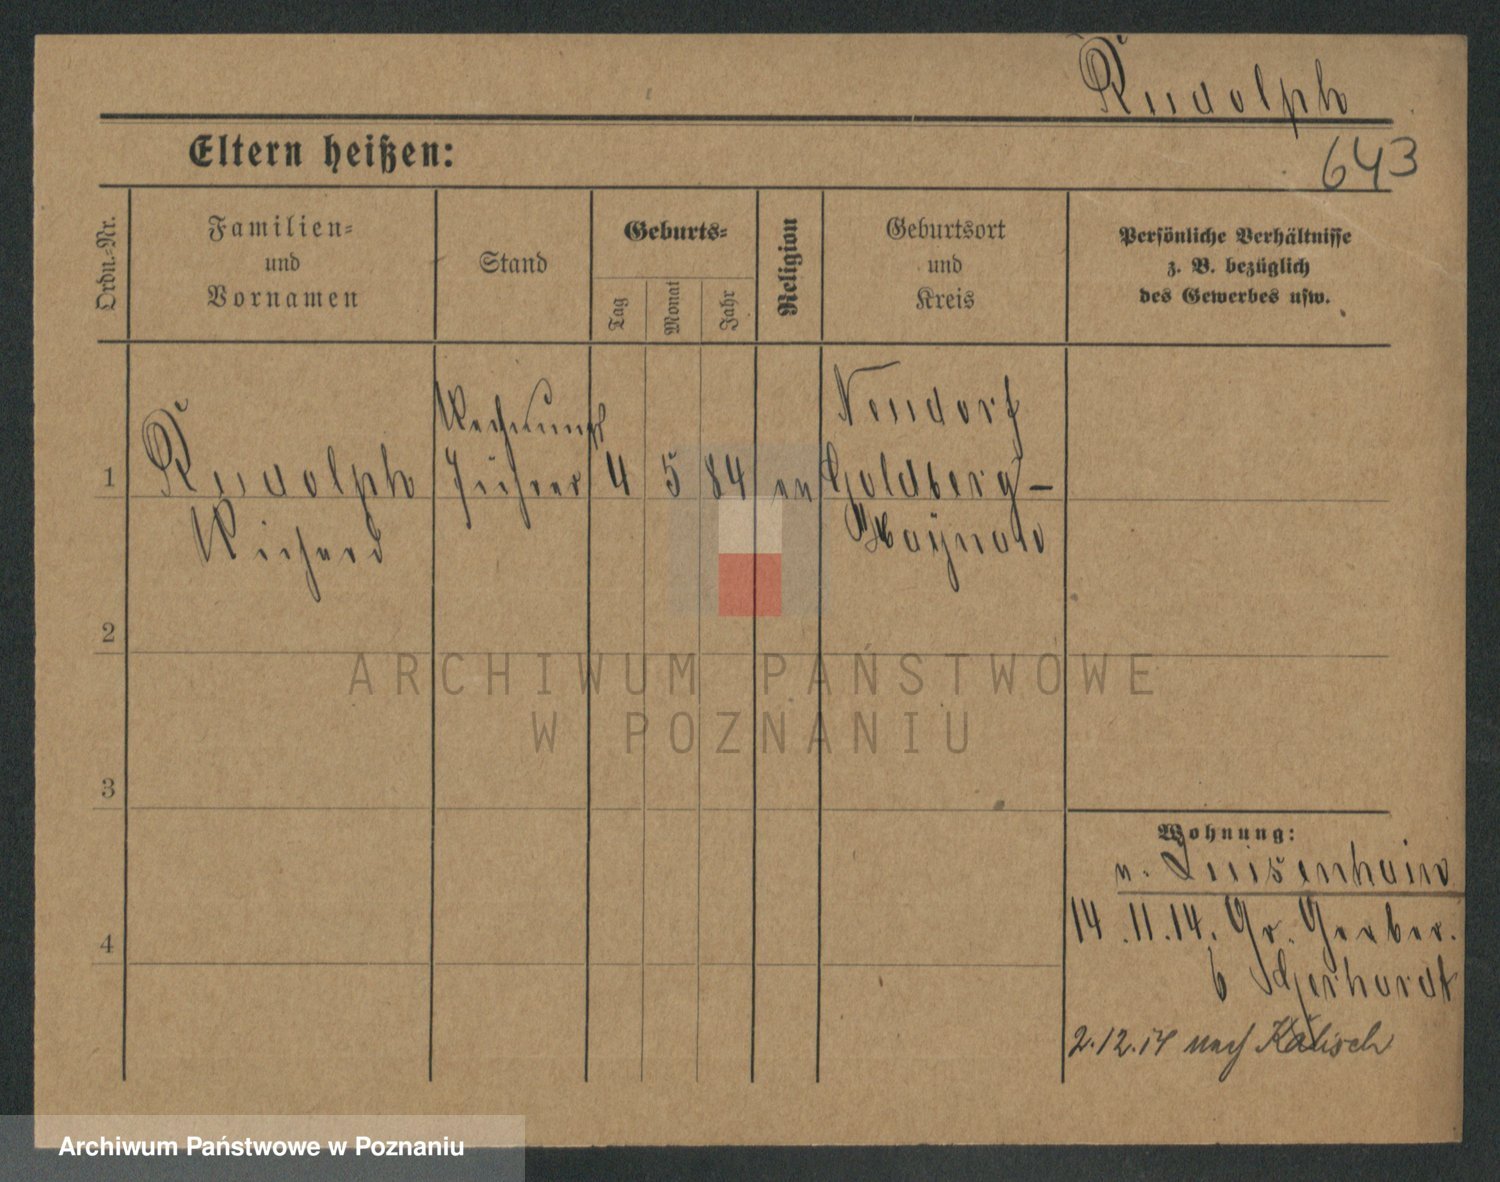 Rudolph
643
Eltern heißen:
Ordn.-Nr.
Familien-
und
Vornamen
Stand
Geburts-
Tag
Monat
Jahr
Religion
Geburtsort
und
Kreis
Persönliche Verhältnisse
z. B. bezüglich
des Gewerbes usw.
1
Rudolph
Richard
Rechnungs
führer
4
5
84
ev
Neudorf
Goldberg-
Haynau
2
3
4
Wohnung:
v. Luisenhain
14.11.14. Gr. Gerber.
b Gerhardt
2.12.14 nach Kalisch
ARCHIWUM PAŃSTWOWE
W POZNANIU
Archiwum Państwowe w Poznaniu